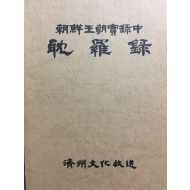 朝鮮王朝實錄中
耽羅錄
濟州文化放送